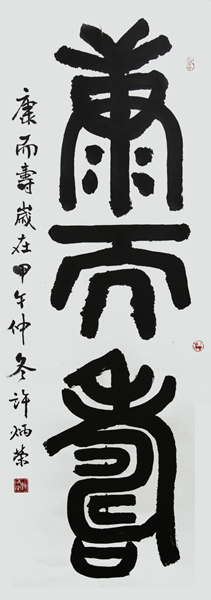 康而壽
康而壽歲在甲午仲冬許炳榮